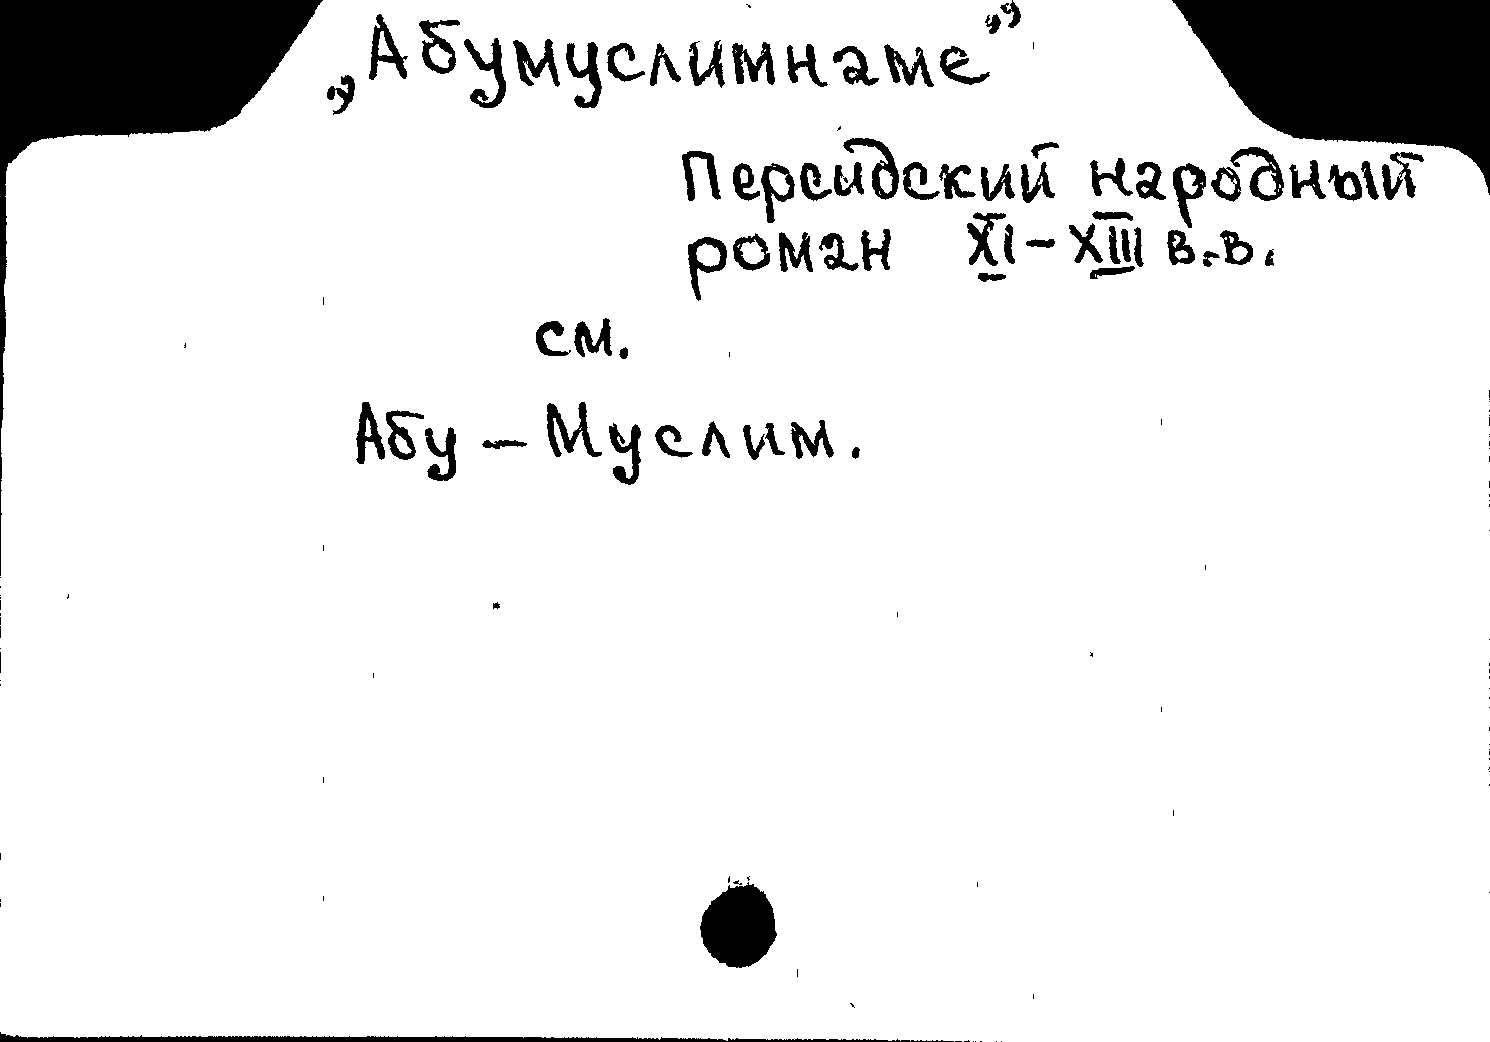 „Абумуслимнаме”
Персидский народный
роман XI – XIII в.в.
см.
Абу – Муслим.